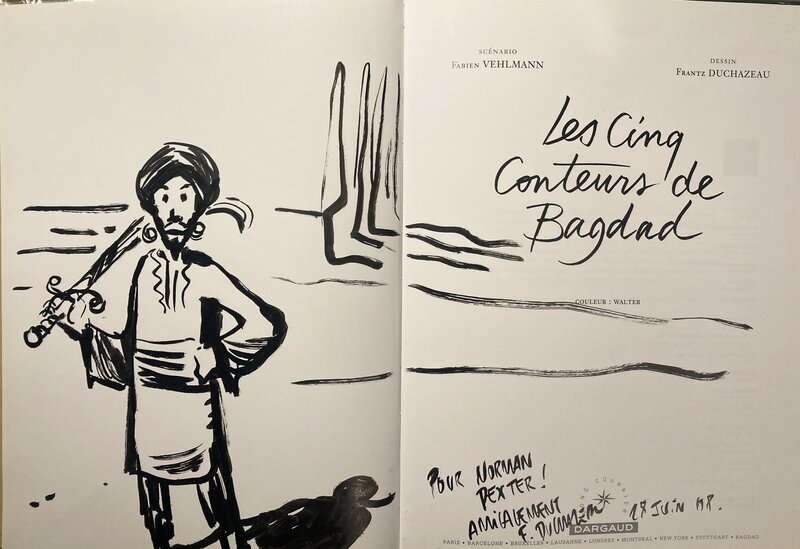 SCÉNARIO
FABIEN VEHLMANN
DESSIN
FRANTZ DUCHAZEAU
Les Cinq
Conteurs de
Bagdad
COULEUR : WALTER
POUR NORMAN
DEXTER !
AMICALEMENT
F. DUCHAZEAU
17 JUIN
DARGAUD
PARIS • BARCELONE • BRUXELLES • LAUSANNE • LONDRES • MONTREAL • NEW YORK • STUTTGART • BAGDAD